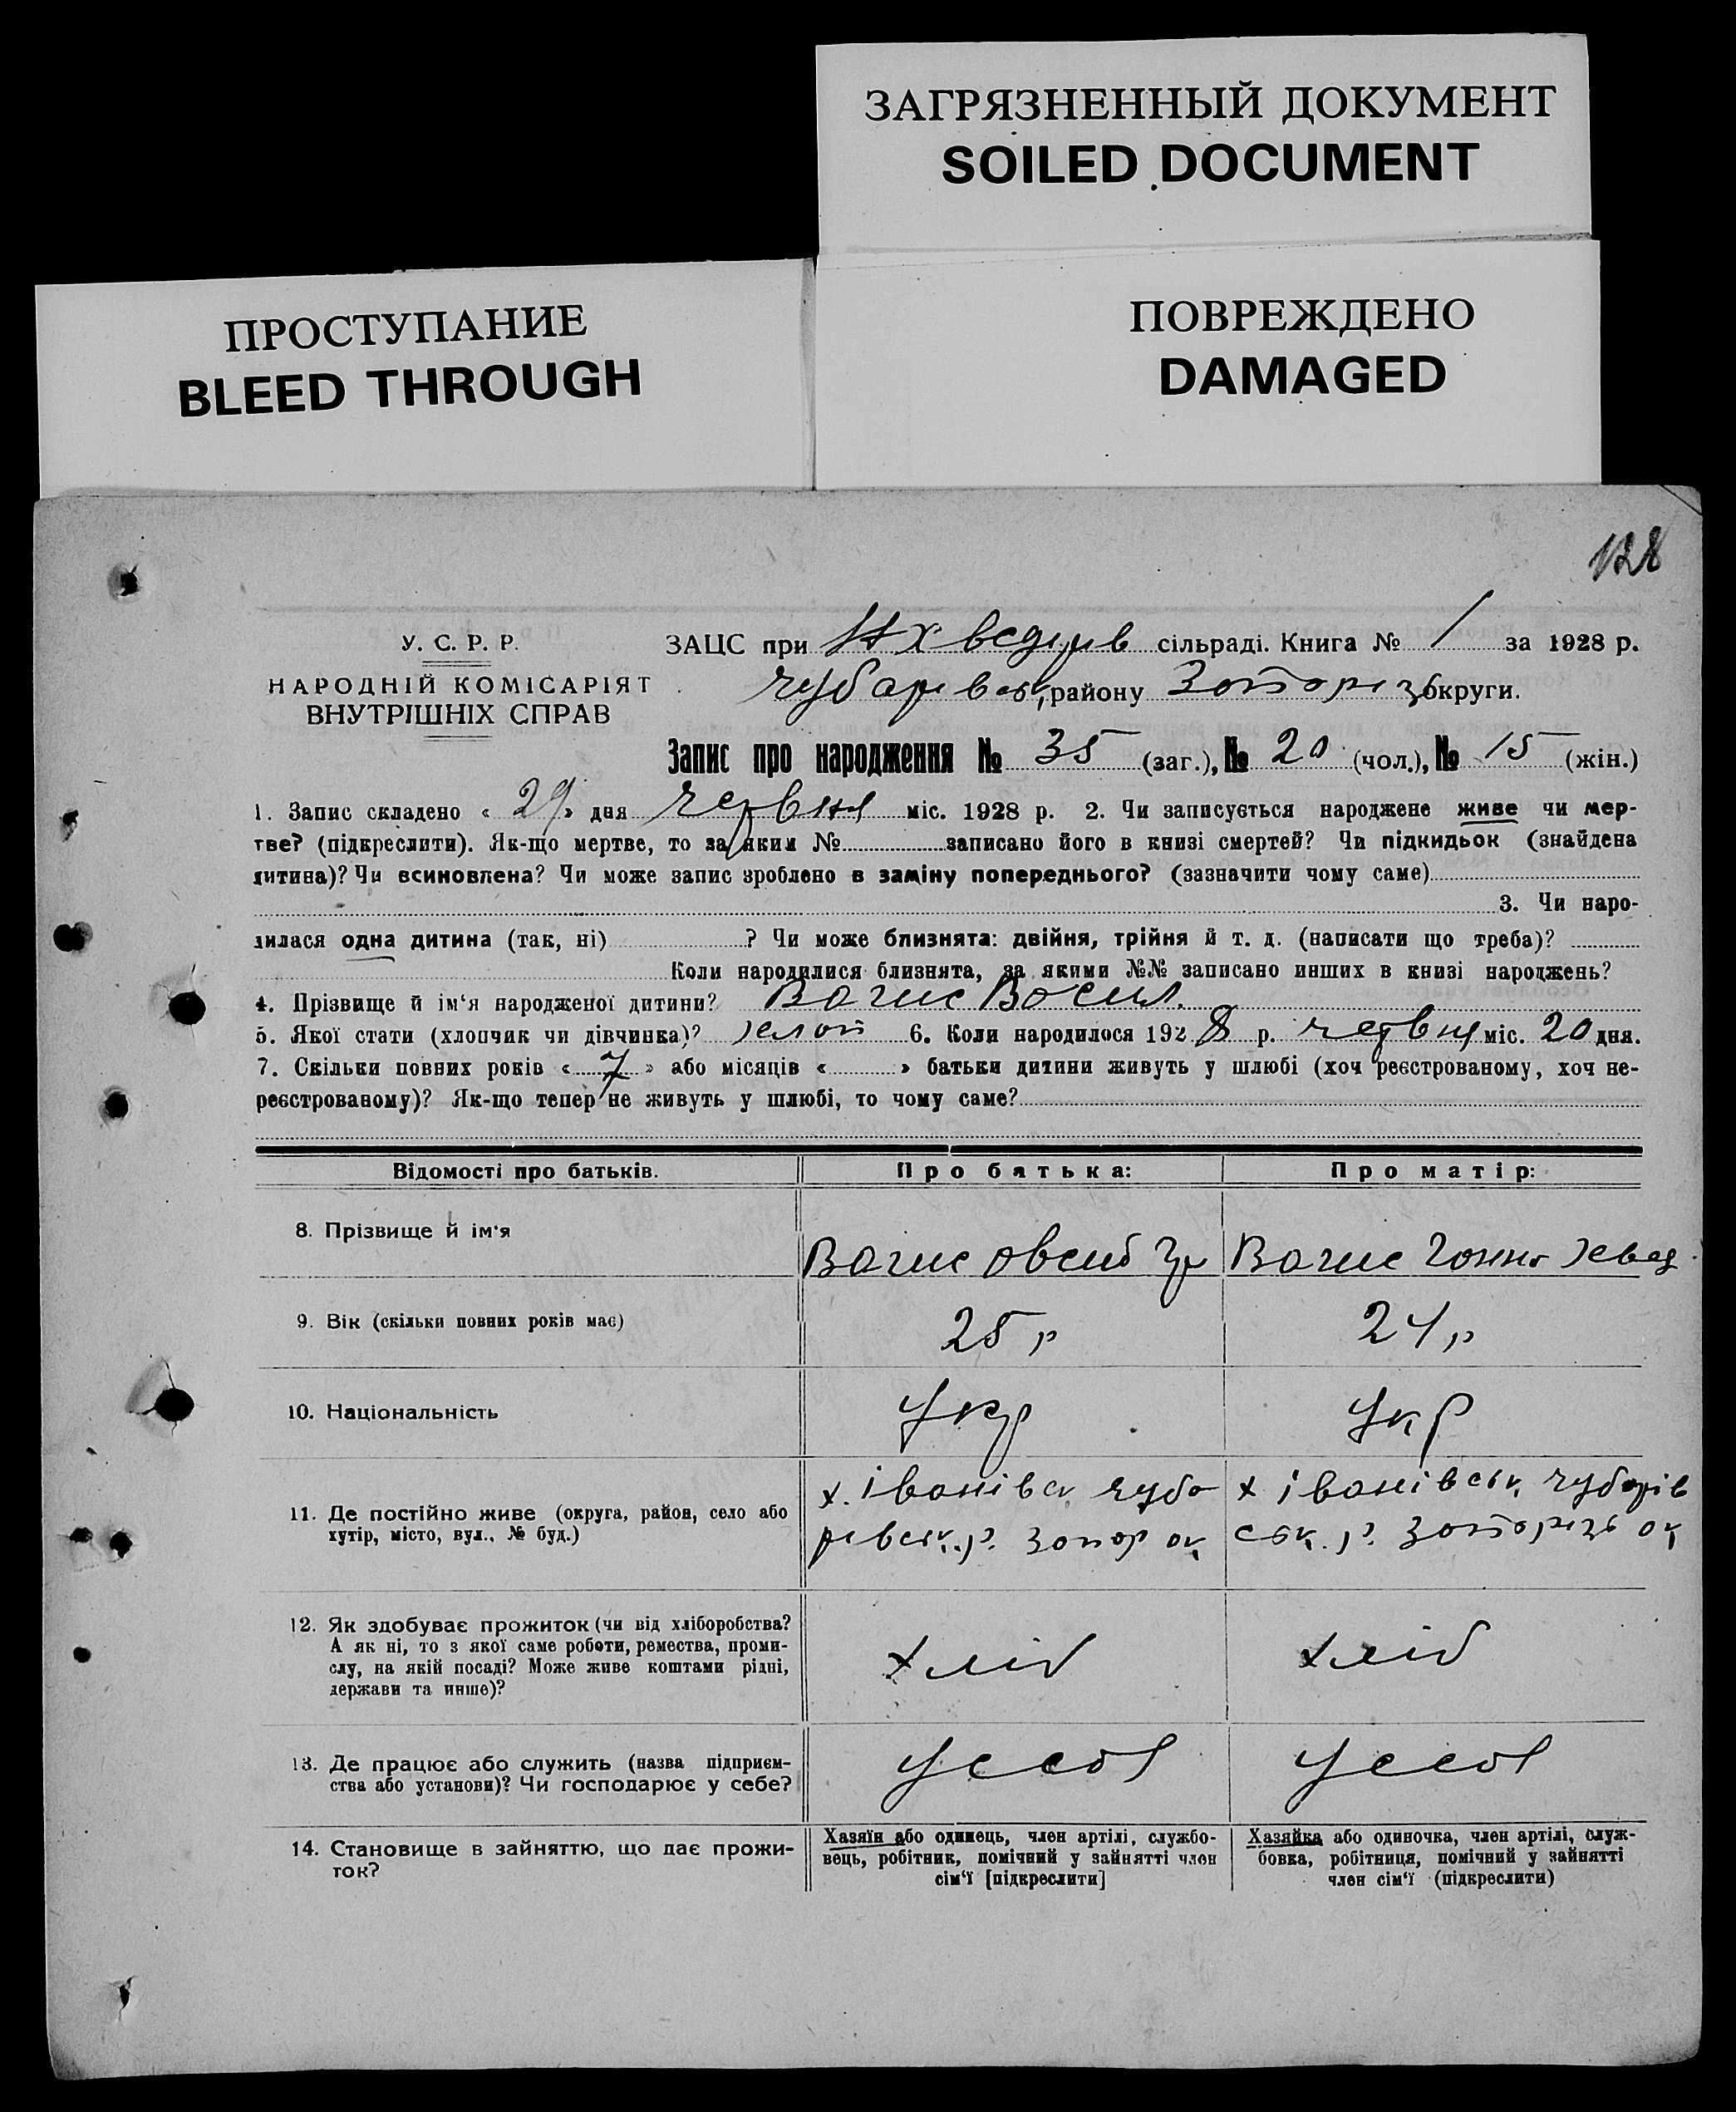 ЗАГРЯЗНЕННЫЙ ДОКУМЕНТ
SOILED DOCUMENT
ПРОСТУПАНИЕ
BLEED THROUGH
ПОВРЕЖДЕНО
DAMAGED
128
У. С. Р. Р.
НАРОДНІЙ КОМІСАРІЯТ
ВНУТРІШНІХ СПРАВ
ЗАЦС при сільраді. Книга № 1 за 1928 р.
району округи.
Запис про народження № 35 (заг.), № 20 (чол.), № 15 (жін.)
1. Запис складено « 29 » дня червня міс. 1928 р. 2. Чи записується народжене живе чи мер-
тве? (підкреслити). Як-що мертве, то за яким № записано його в книзі смертей? Чи підкидьок (знайдена
дитина)? Чи всиновлена? Чи може запис зроблено в заміну попереднього? (зазначити чому саме)
3. Чи наро-
дилася одна дитина (так, ні) ? Чи може близнята: двійня, трійня й т. д. (написати що треба)?
Коли народилися близнята, за якими №№ записано инших в книзі народжень?
4. Прізвище й ім'я народженої дитини? Вагис Васил.
5. Якої стати (хлопчик чи дівчинка)? 6. Коли народилося 1928 р. червня міс. 20 дня.
7. Скільки повних років « 7 » або місяців « » батьки дитини живуть у шлюбі (хоч реєстрованому, хоч не-
реєстрованому)? Як-що тепер не живуть у шлюбі, то чому саме?
Відомості про батьків. Про батька: Про матір:
8. Прізвище й ім'я
Вагис Вагис
9. Вік (скільки повних років має)
25 р 24 р
10. Національність
Укр Укр
11. Де постійно живе (округа, район, село або
хутір, місто, вул., № буд.)
х. Іванівськ х Іванівськ
12. Як здобуває прожиток (чи від хліборобства?
А як ні, то з якої саме роботи, ремества, проми-
слу, на якій посаді? Може живе коштами рідні,
держави та инше)?
хліб хліб
13. Де працює або служить (назва підприєм-
ства або установи)? Чи господарює у себе?
У себя У себя
14. Становище в зайняттю, що дає прожи-
ток?
Хазяїн або одинець, член артілі, службо-
вець, робітник, помічний у зайнятті член
сім'ї [підкреслити]
Хазяйка або одиночка, член артілі, служ-
бовка, робітниця, помічний у зайнятті
член сім'ї (підкреслити)